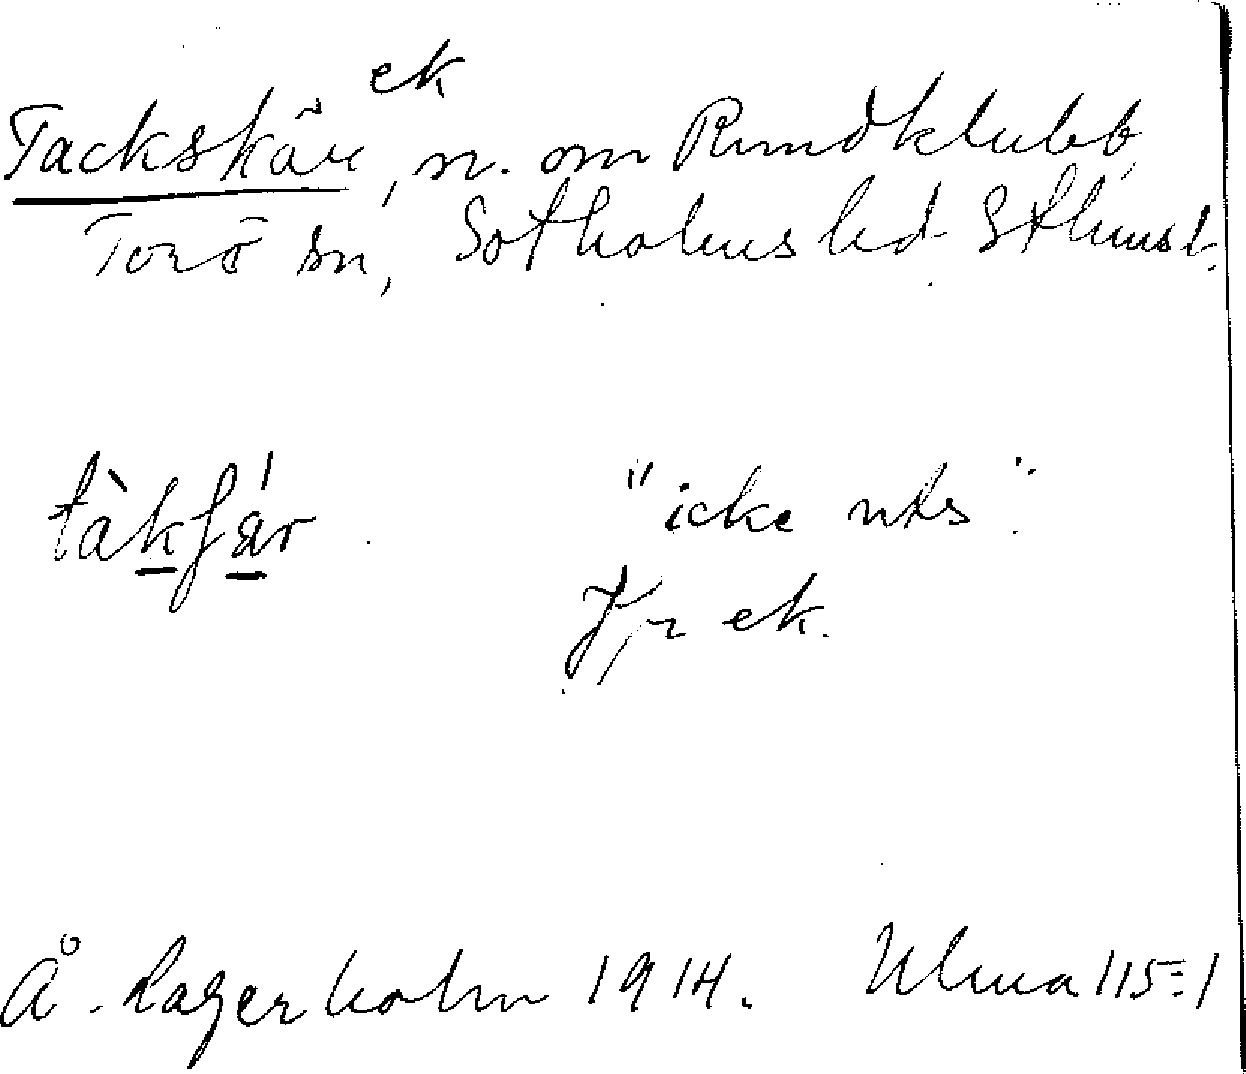 ek
Tackskär, n. om Rundklubb,
Torö sn, Sotholms hd Sthms l.
tàkʃá̱r "icke uts".
Jfr ek.
Å. Lagerholm 1914. Ulma 115:1